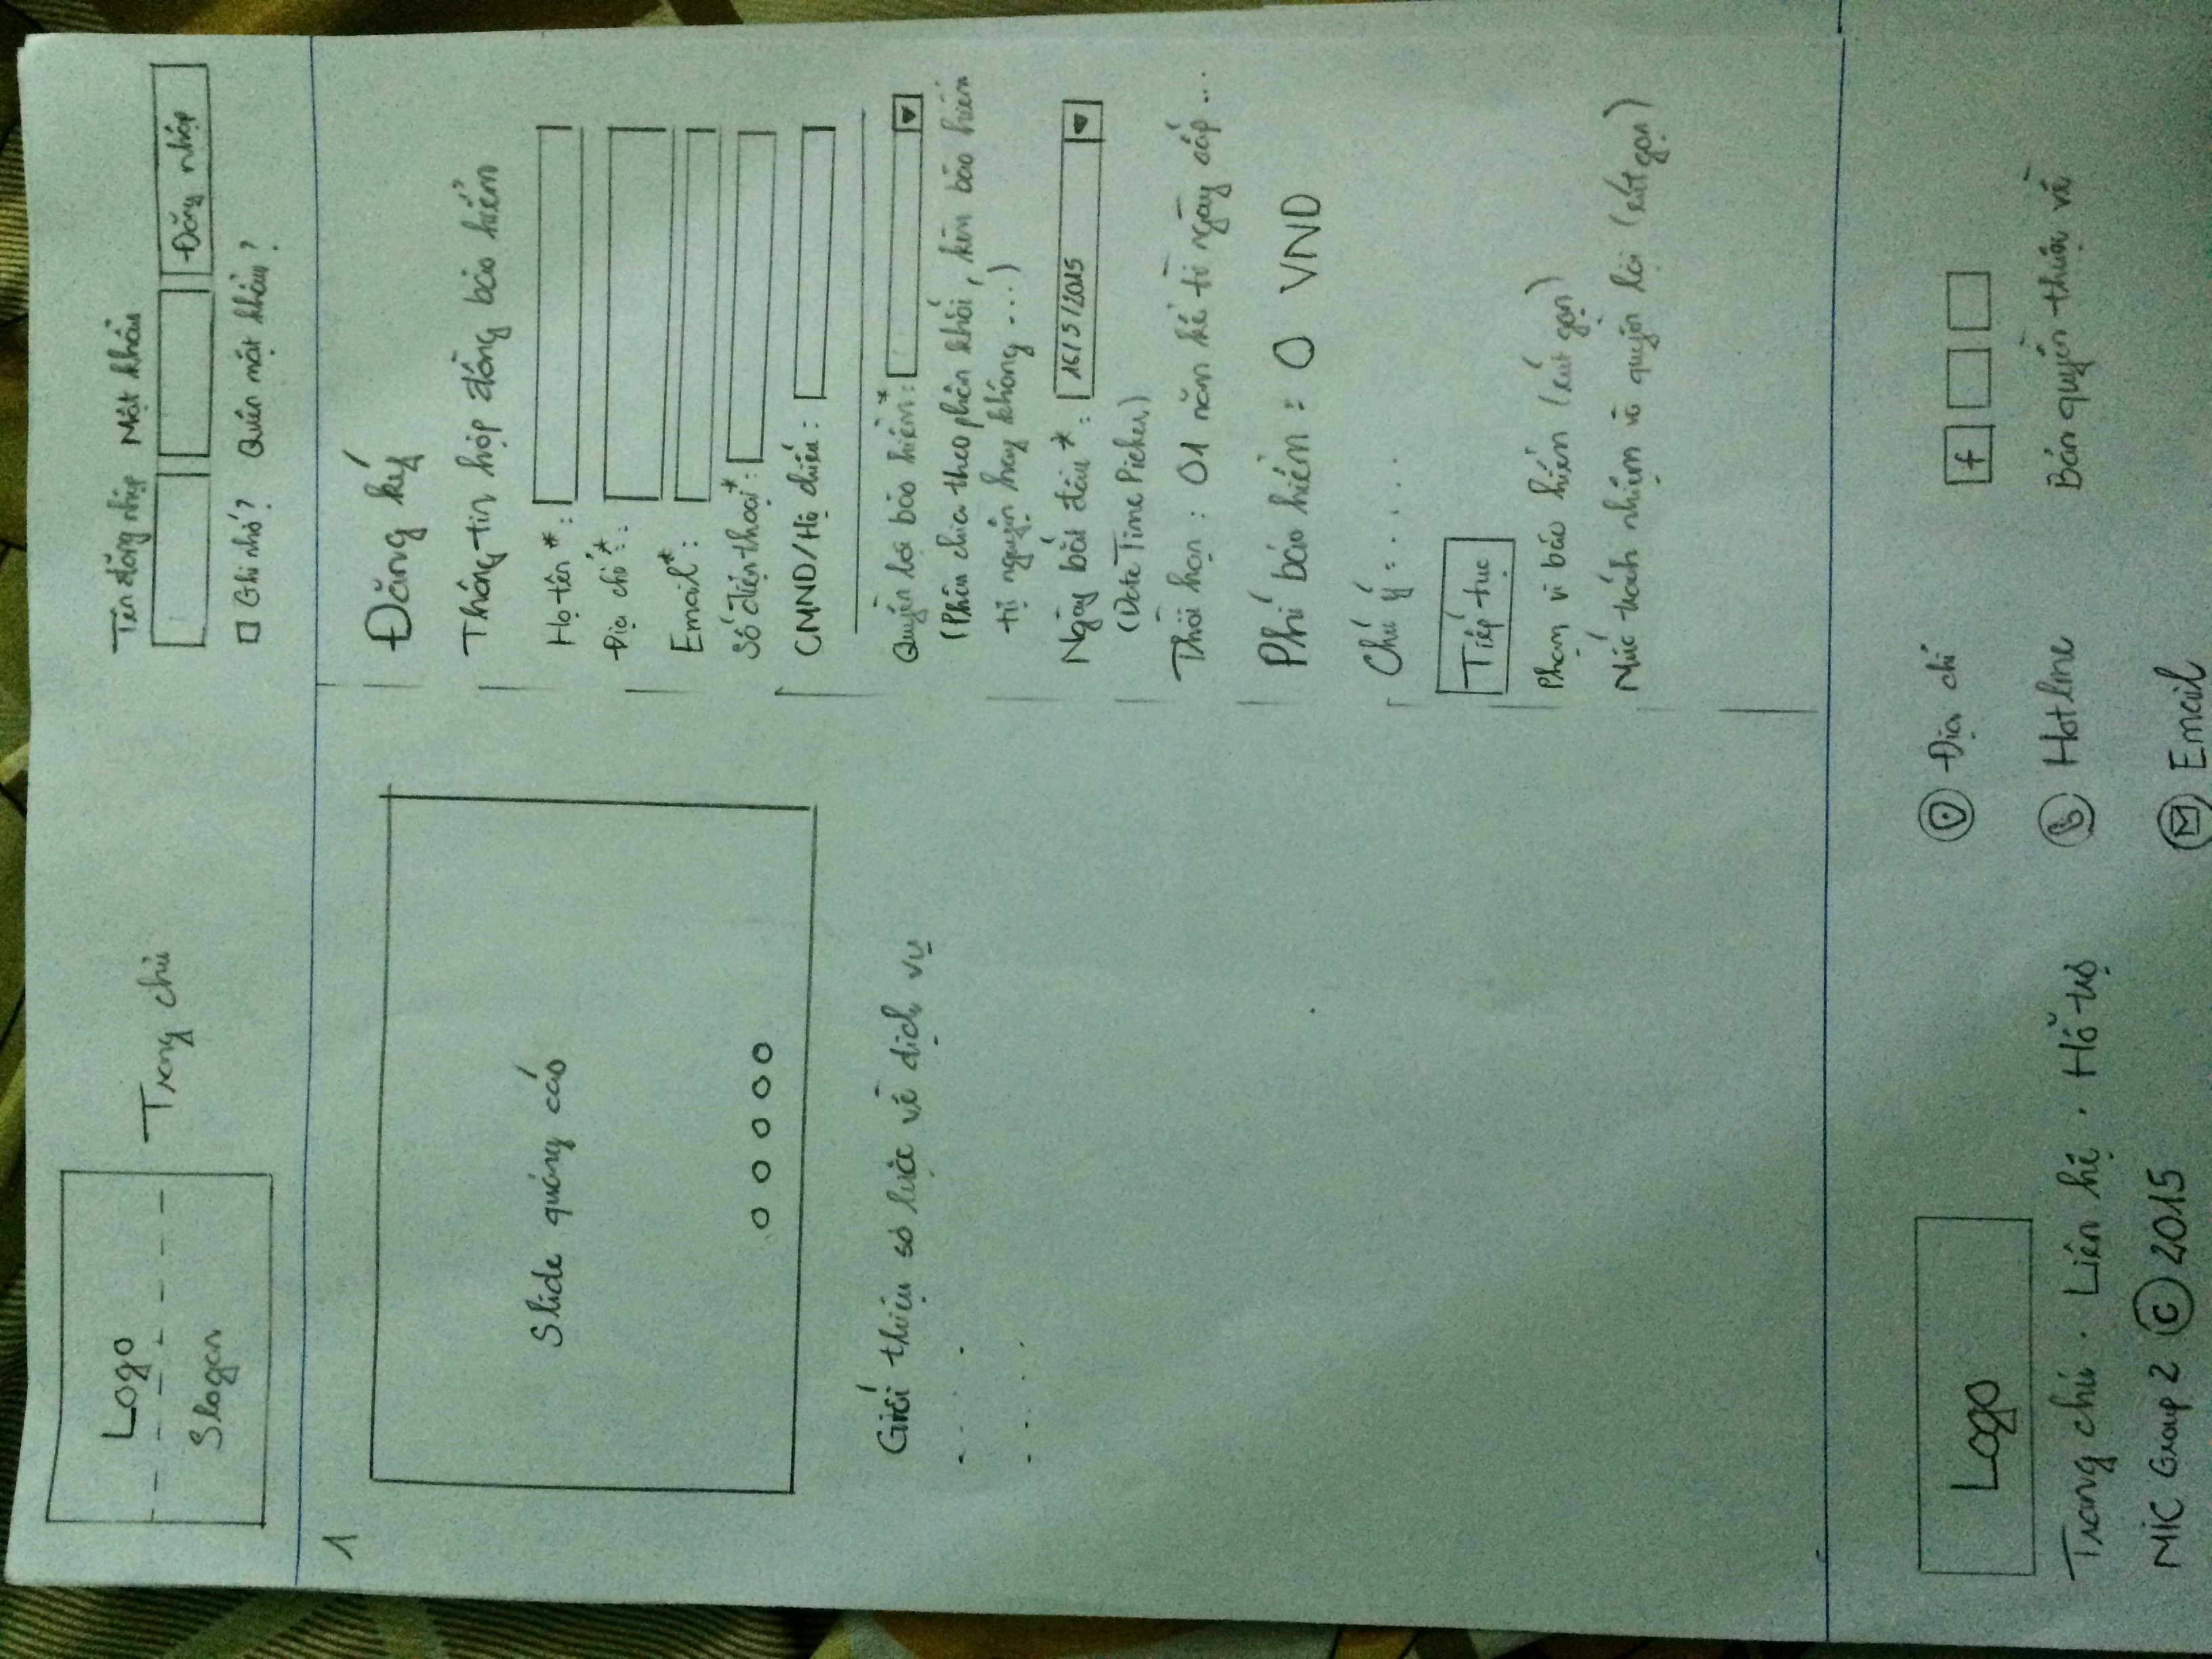 Logo
Slogan
Trang chủ
Tên đăng nhập Mật khẩu
Đăng nhập
Ghi nhớ? Quên mật khẩu?
1
Slide quảng cáo
Giới thiệu sơ lược về dịch vụ
. . . . .
. . . . .
Đăng ký
Thông tin hợp đồng bảo hiểm
Họ tên *:
Địa chỉ *:
Email*:
Số điện thoại*:
CMND/Hộ chiếu:
Quyền lợi bảo hiểm*:
(Phân chia theo phân khối, kèm bảo hiểm
tự nguyện hay không ...)
Ngày bắt đầu *: 16/5/2015
(Date Time Picker)
Thời hạn: 01 năm kể từ ngày cấp ...
Phí bảo hiểm: 0 VND
Chú ý: . . . .
Tiếp tục
Phạm vi bảo hiểm (rút gọn)
Mức trách nhiệm và quyền lợi (rút gọn)
Logo
Trang chủ . Liên hệ . Hỗ trợ
MIC Group 2 © 2015
Địa chỉ
Hotline
Email
f
Bản quyền thuộc về